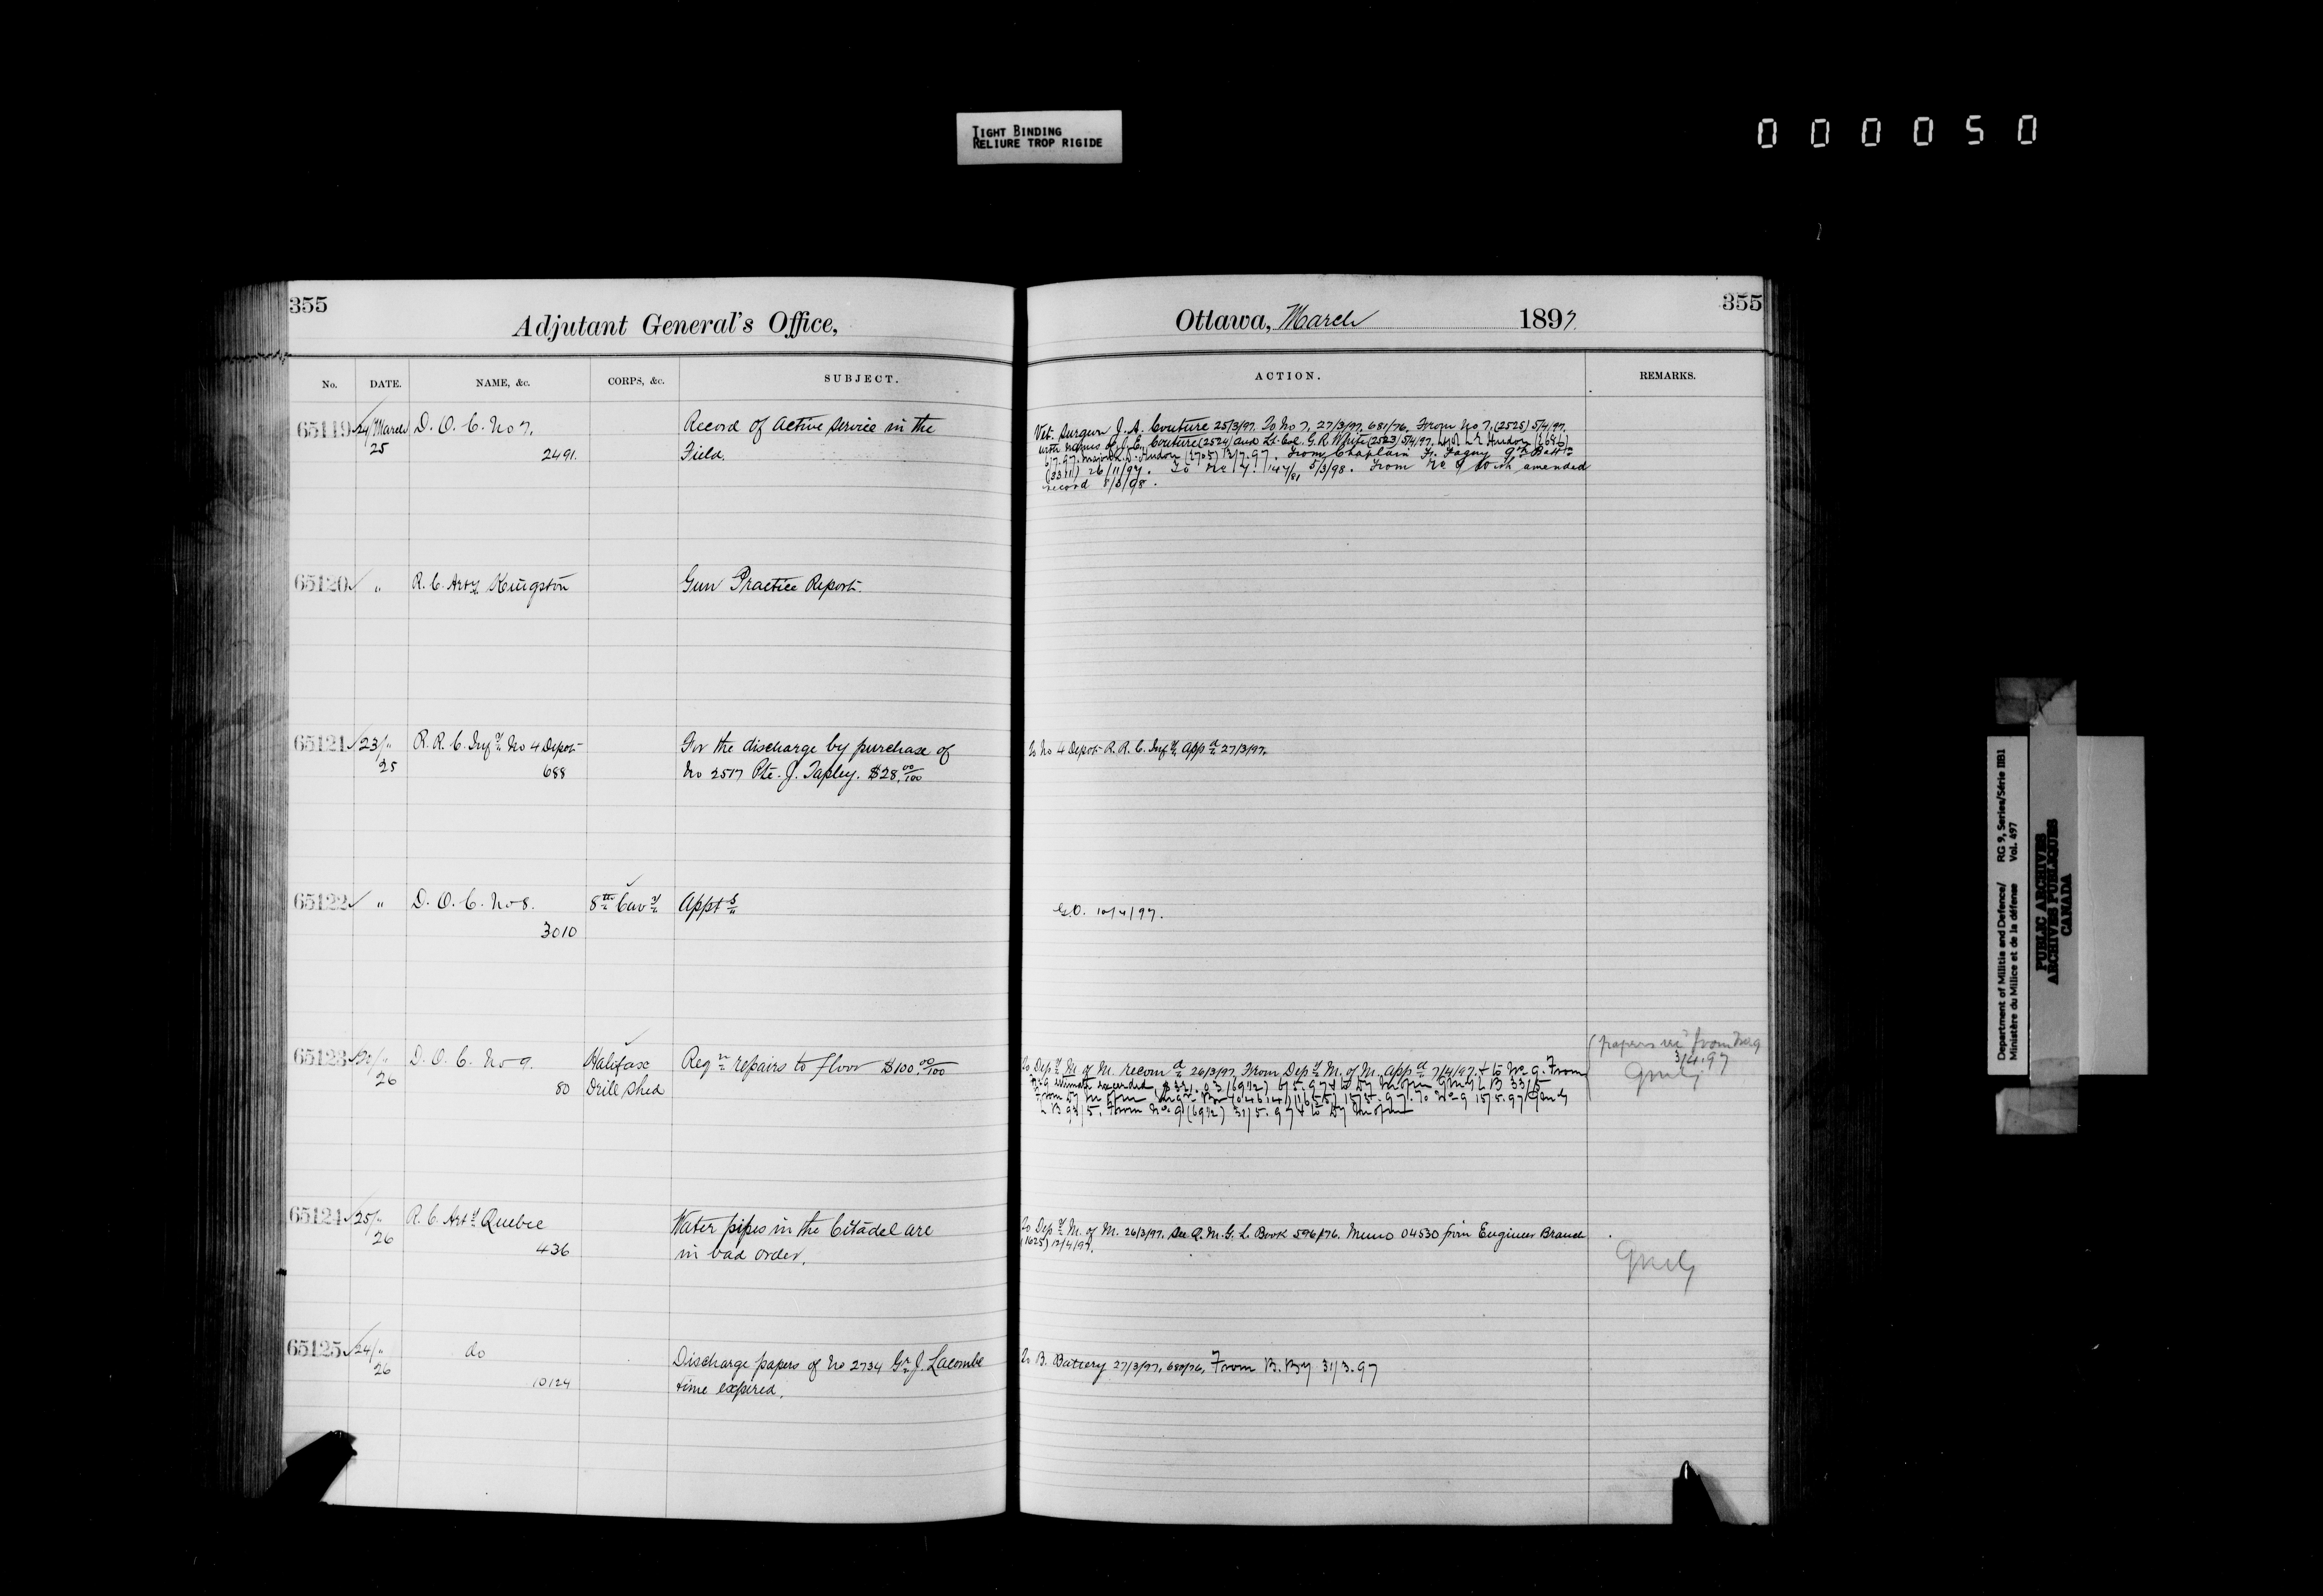 TIGHT BINDING
RELIURE TROP RIGIDE
000050
355
Adjutant General's Office,
No. DATE. NAME, &c. CORPS, &c. SUBJECT.
65119 24/March D. O. C. No 7. Record of active service in the
25 2491. Field.
65120 " R. C. Arty Kingston Gun Practice Report.
65121 23/" R. R. C. Infy No 4 Depot For the discharge by purchase of
25 688 No 2517 Pte. J. Tapley. $28.00/100
65122 " D. O. C. No 8. 8th Cavy Appts
3010
65123 20/" D. O. C. No 9. Halifax Reqn repairs to floor $100 00/100
26 80 Drill Shed
65124 25/" R. C. Arty Quebec Water pipes in the Citadel are
26 436 in bad order.
65125 24/" do Discharge papers of No 2734 Gr J. Lacombe
26 10124 time expired.
355
Ottawa, March 1897.
ACTION. REMARKS.
Vet. Surgeon J. A. Couture 25/3/97. To No 7, 27/3/97. 681/76. From No 7, (2525) 5/4/97.
with names of J. E. Couture (2524) and Lt. Col. G. R. White (2523) 5/4/97. Hudon
6/7.97. Major Hudon (2705) 13/7.97. From Chaplain F. Faguy 9th Battn
(3311) 26/11/97. To No 7. 147/81 5/3/98. From No 7 with amended
record 8/3/98.
To No 4 Depot R. R. C. Infy Appd 27/3/97.
G.O. 10/4/97.
To Depy M. of M. recomd 26/3/97. From Depy M. of M. Appd 7/4/97. & to No 9. From
No 9 estimate exceeded
15/5.97. To No 9 15/5.97
93/5. From No 9 (6912) 31/5.97 & to
(papers from
3/4.97
To Depy M. of M. 26/3/97. See Q.M.G. L. Book 596/76. Memo 04530 from Engineer Branch
(1625) 12/4/97.
To B. Battery 27/3/97. 680/76. From B. By 31/3.97
Department of Militia and Defence/ RG 9, Series/Série IIB1
Ministère du Milice et de la défense Vol. 497
PUBLIC ARCHIVES
ARCHIVES PUBLIQUES
CANADA